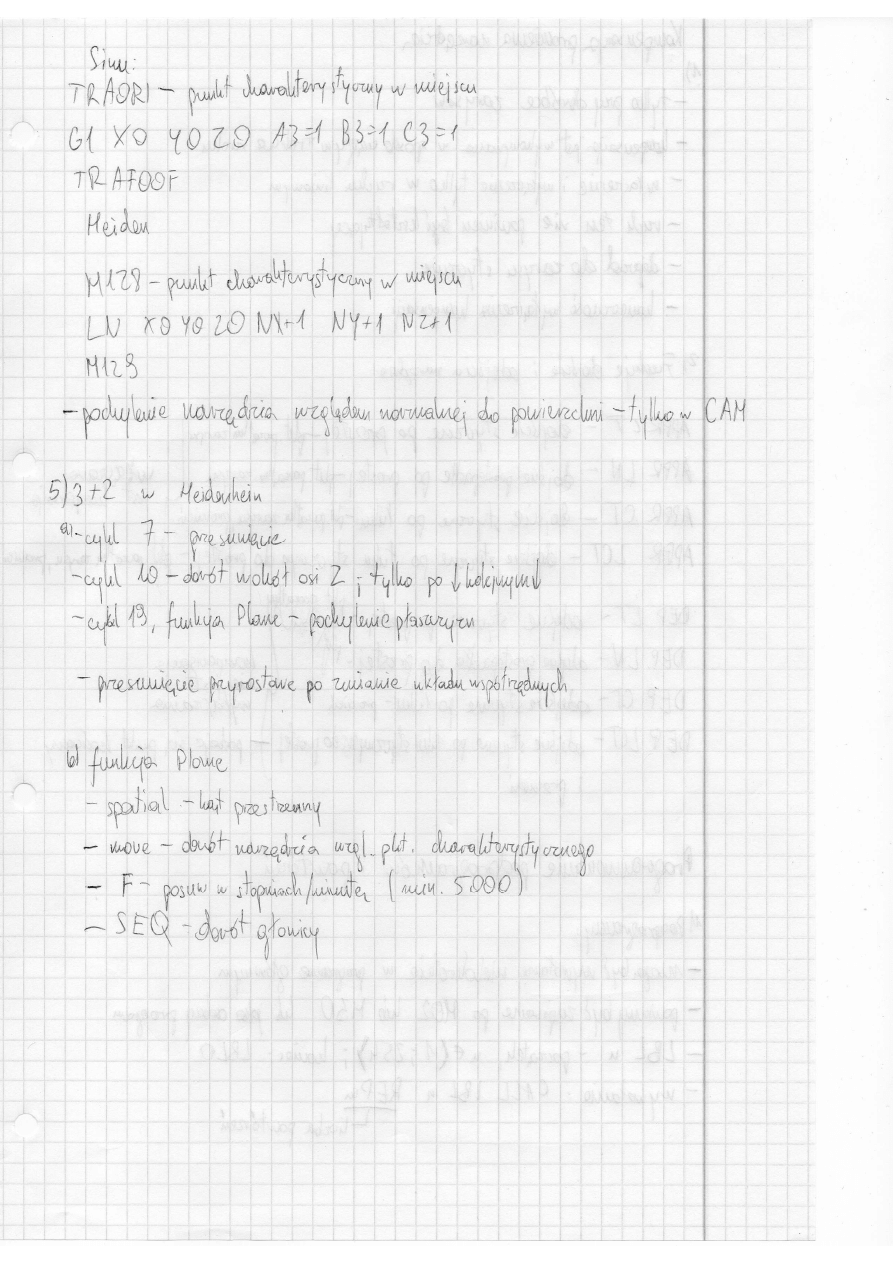 Sinu:
TRAORI – punkt charakterystyczny w miejscu
G1 X0 Y0 Z0 A3=1 B3=1 C3=1
TRAFOOF
Heiden
M128 – punkt charakterystyczny w miejscu
LN X0 Y0 Z0 NX+1 NY+1 NZ+1
M129
– pochylenie narzędzia względem normalnej do powierzchni – tylko w CAM
5) 3+2 w Heidenhein
a) - cykl 7 – przesunięcie
- cykl 10 – obrót wokół osi Z ; tylko po ↓kolejnym↓
- cykl 19, funkcja Plane – pochylenie płaszczyzn
- przesunięcie przyrostowe po zmianie układu współrzędnych
b) funkcja Plane
– spatial – kąt przestrzenny
– move – obrót narzędzia wzgl. pkt. charakterystycznego
– F – posuw w stopniach/minutę (min. 5000)
– SEQ – obrót głowicy